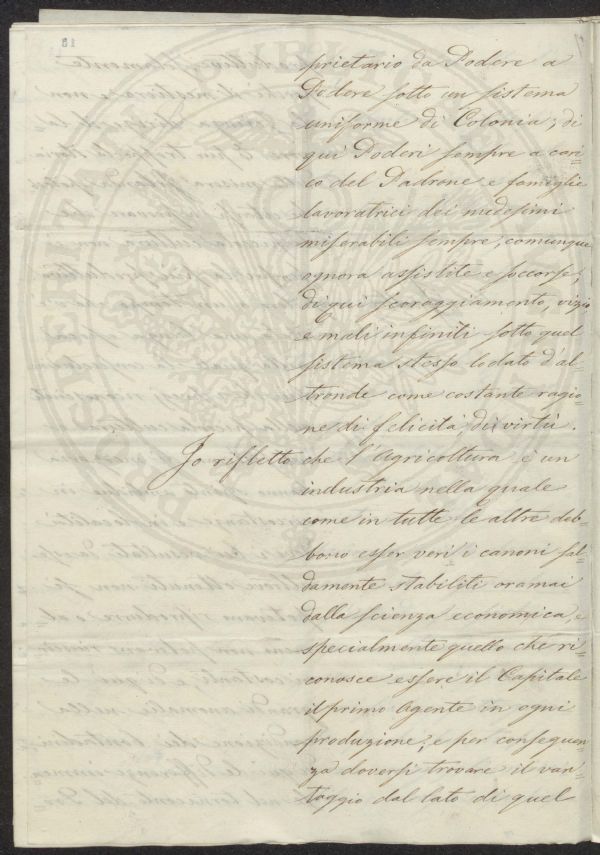 prietario da Podere a
Podere sotto un sistema
uniforme di Colonia; di
qui Poderi sempre a cari=
co del Padrone e famiglie
lavoratrici dei medesimi
miserabili sempre, comunque
ognora assistite e soccorse;
di qui scoraggiamento, vizio
e mali infiniti sotto quel
sistema stesso lodato d'al=
tronde come costante ragio=
ne di felicità, di virtù.
Io rifletto che l'Agricoltura è un
industria nella quale
come in tutte le altre deb=
bono esser veri i canoni sal=
damente stabiliti oramai
dalla scienza economica, e
specialmente quello che ri=
conosce essere il Capitale
il primo Agente in ogni
produzione; e per conseguen=
za doversi trovare il van=
taggio dal lato di quel